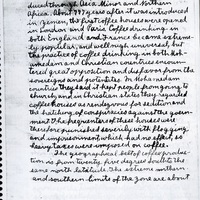 duced through Asia Minor and Northern
Africa. About 999 years after it was introduced
in Yemen, the first coffee houses were opened
in London and Paris. Coffee drinking in
both England and France became extreme-
ly popular, and well nigh universal, but
the practice of coffee drinking in both Mo-
hammedan and Christian countries encoun-
tered great opposition and disfavor from the
sovereigns and potentates. In Mohammedan
countries they said it kept people from going to
church, and in Christian states they regarded
coffee houses as rendezvous for sedition and
the hatching of conspiracies against the govern-
ment. The frequenters of these houses were
therefore punished severely with flogging
and imprisonment which had no effect, so
heavy taxes were imposed on coffee.
The geographical belt of coffee produc-
tion is from twenty-five degrees south to the
same north latitude. The extreme northern
and southern limits of the zone are about